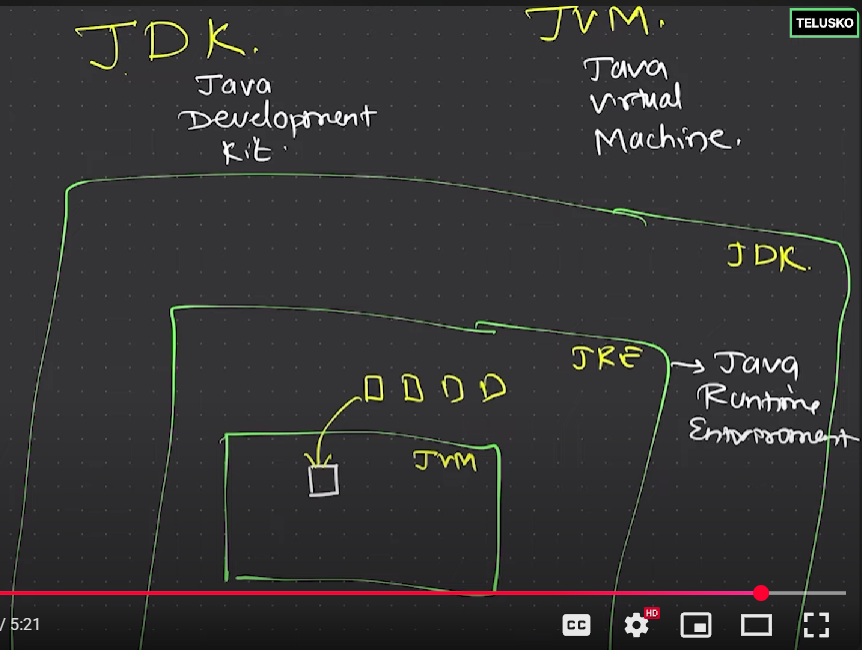 JDK.
Java
Development
Kit.
JVM.
Java
Virtual
Machine.
TELUSKO
JDK.
JRE
Java
Runtime
Environment
JVM
/ 5:21
CC
HD